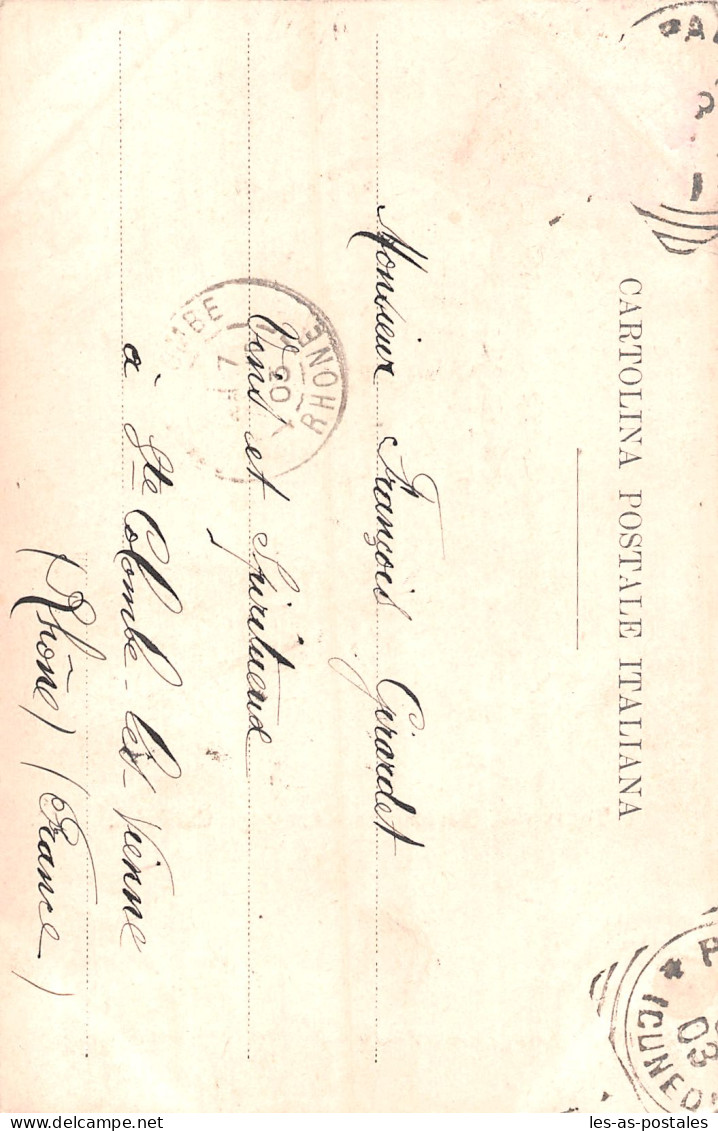 CARTOLINA POSTALE ITALIANA
Monsieur François Girardet
Vins et Spiritueux
à Ste Colombe-les-Vienne
(Rhône) (France)
RHONE
03
CUNEO
les-as-postales